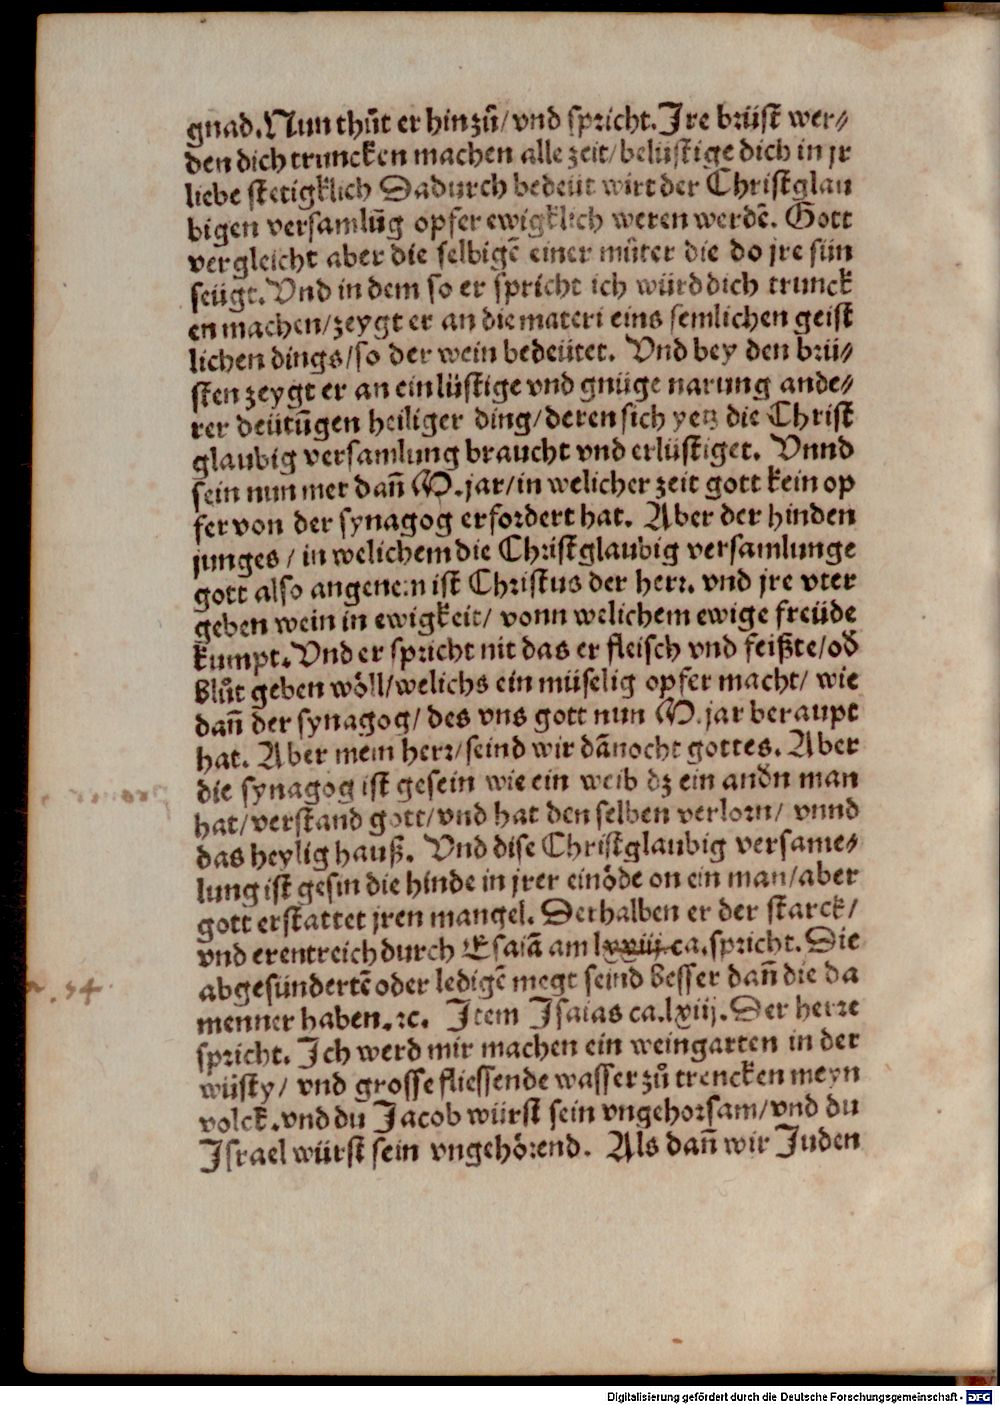 gnad. Nun thůt er hinzů/ vnd spricht. Jre brüst wer⸗
den dich truncken machen alle zeit/ belüstige dich in jr
liebe stetigklich Dadurch bedeüt wirt der Christglau
bigen versamlūg opfer ewigklich weren werdē. Gott
vergleicht aber die selbigē einer můter die do jre sün
seügt. Vnd in dem so er spricht ich würd dich trunck
en machen/ zeygt er an die materi eins semlichen geist
lichen dings/ so der wein bedeütet. Vnd bey den brü⸗
sten zeygt er an ein lüstige vnd gnüge narung ande⸗
rer deütūgen heiliger ding/ deren sich yetz die Christ
glaubig versamlung braucht vnd erlüstiget. Vnnd
sein nun mer dañ M. jar/ in welicher zeit gott kein op
fer von der synagog erfordert hat. Aber der hinden
junges / in welichem die Christglaubig versamlunge
gott also angenem ist Christus der herr. vnd jre vter
geben wein in ewigkeit/ vonn welichem ewige freüde
kumpt. Vnd er spricht nit das er fleisch vnd feißte/ od
Blůt geben wöll/ welichs ein müselig opfer macht/ wie
dañ der synagog/ des vns gott nun M. jar beraupt
hat. Aber mein herr/ seind wir dānocht gottes. Aber
die synagog ist gesein wie ein weib dz ein andn man
hat/ verstand gott/ vnd hat den selben verlorn/ vnnd
das heylig hauß. Vnd dise Christglaubig versame⸗
lung ist gesin die hinde in jrer einöde on ein man/ aber
gott erstattet jren mangel. Derhalben er der starck/
vnd erentreich durch Esaiā am lxxiiij. ca. spricht. Die
.54.
abgesündertē oder ledigē megt seind besser dañ die da
menner haben. ꝛc. Jtem Jsaias ca. lxiij. Der herre
spricht. Jch werd mir machen ein weingarten in der
wüsty/ vnd grosse fliessende wasser zů trencken meyn
volck. vnd du Jacob würst sein vngehorsam/ vnd du
Jsrael würst sein vngehörend. Als dañ wir Juden
Digitalisierung gefördert durch die Deutsche Forschungsgemeinschaft - DFG